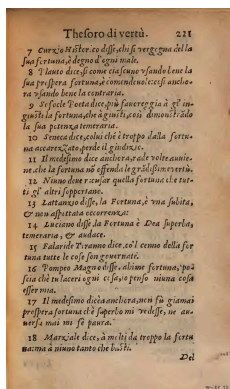 Thesoro di vertù. 221
7 Curzio Histor.co disse, chi si vergogna della
sua fortuna, è degno d'ogni male.
8 Plauto dice, si come ciascuno usando bene la
sua prospera fortuna, è comendevole: così ancho-
ra usando bene la contraria.
9 Sofocle Poeta dice, più favoreggia à gl' in-
giusti la fortuna, che à giusti, così dimostrādo
la sua potenza temeraria.
10 Seneca dice, colui ch'è troppo dalla fortu-
na accarezzato, perde il giudizio.
11 Il medesimo dice anchora, rade volte auuie-
ne, che la fortuna nō offenda le grādissime vertù.
12 Niuno deve ricusar quella fortuna che tut-
ti gl' altri sopportano.
13 Lattanzio disse, la Fortuna è vna subita,
& non aspettata occorrenza:
14 Luciano disse la Fortuna è Dea superba,
temeraria, & audace.
15 Falaride Tiranno dice, co'l cenno della for
tuna tutte le cose son gouernate.
16 Pompeo Magno disse, ahime fortuna, poi
scia che tu laceri ogni cosa, io penso niuna cosa
esser mia.
17 Il medesimo dice anchora, non fù giamai
prospera fortuna ch'è superbo mi vedesse, ne au-
uersa mai mi fe paura.
18 Marziale dice, à molti dà troppo la fortu
na: ma à niuno tanto che basti.
Del